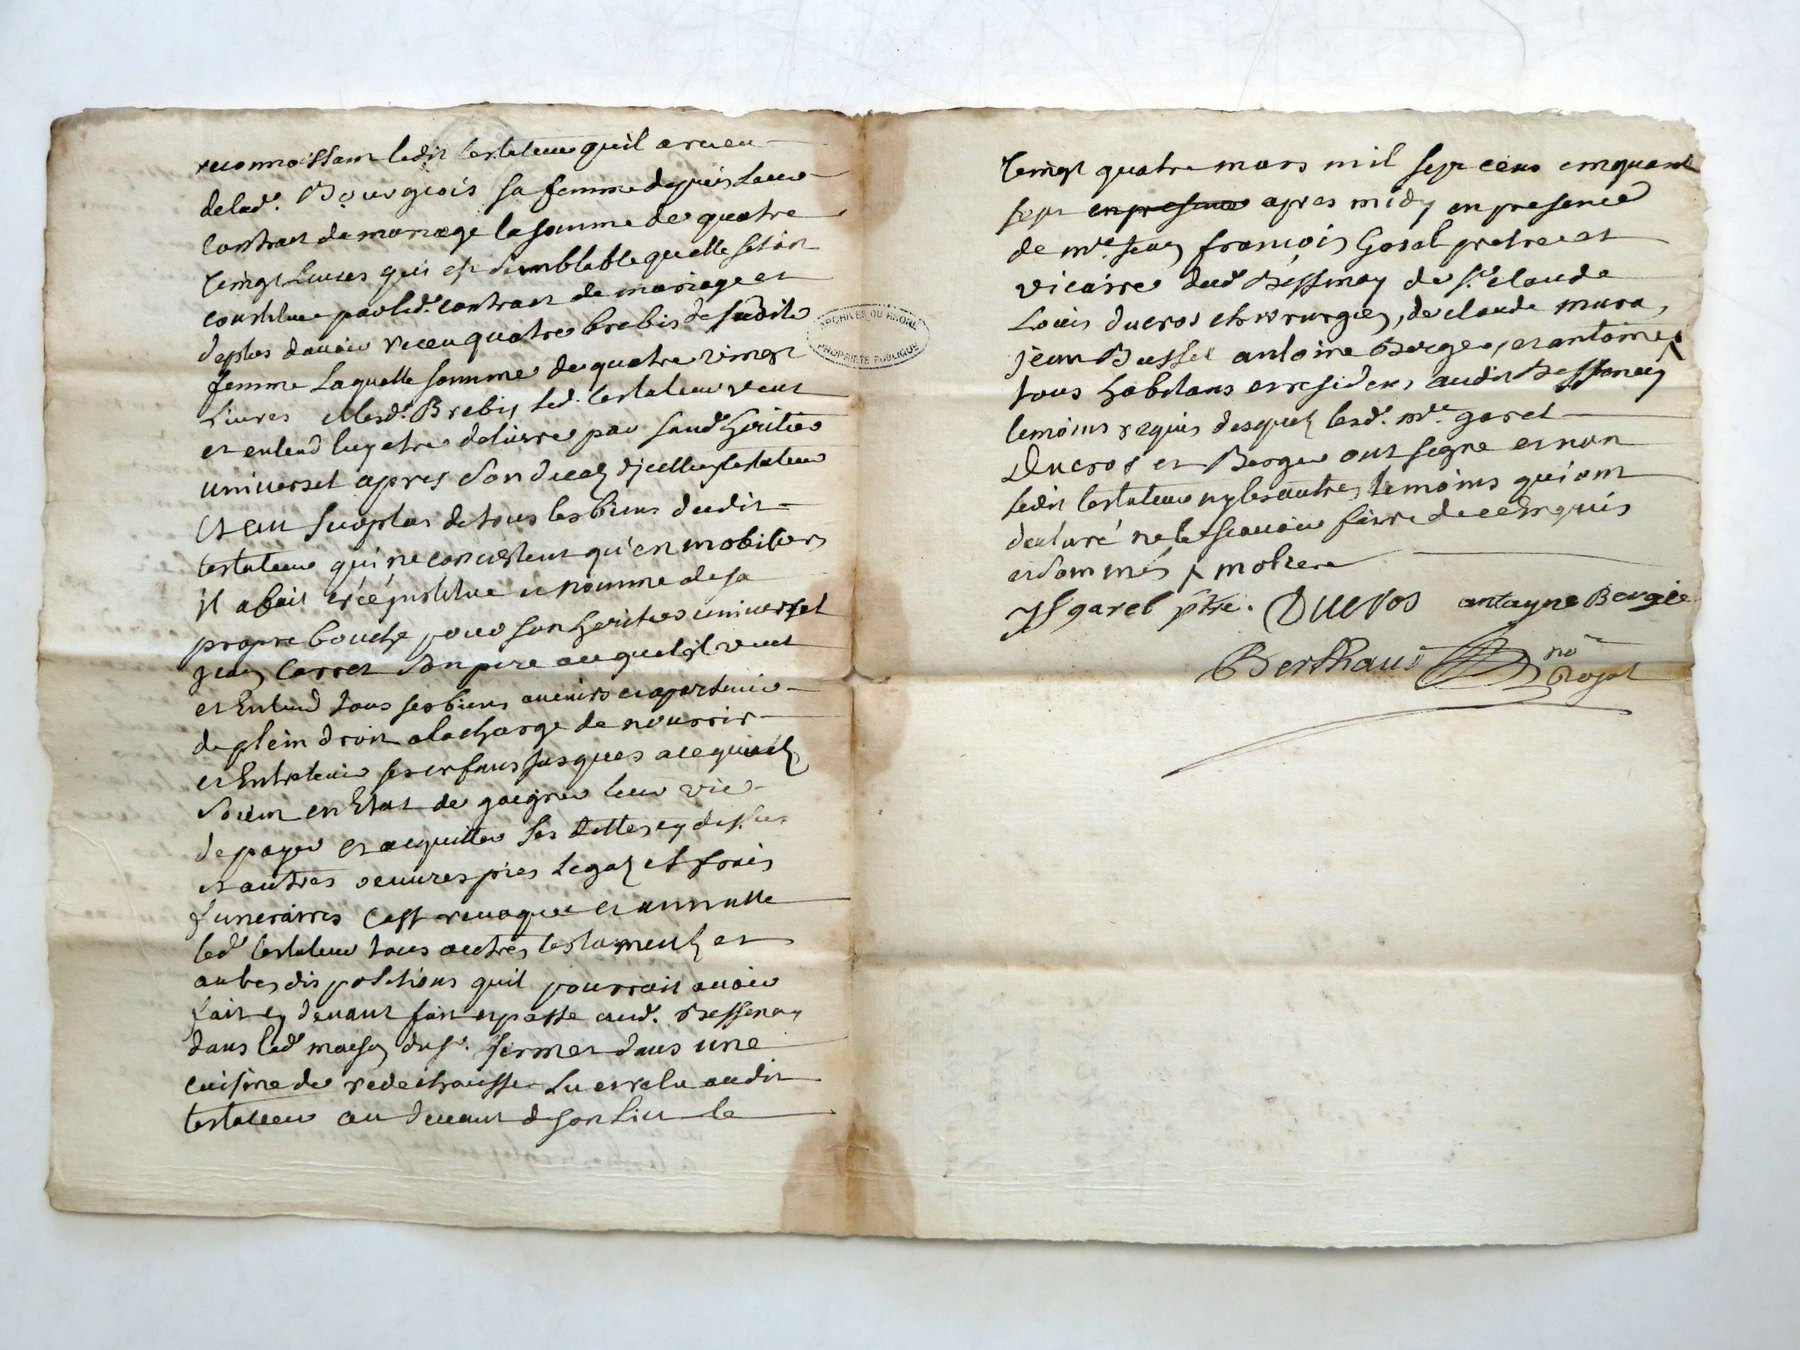 reconnoissant ledit testateur quil a receu
de lad.e Bourgeois sa femme depuis leur
contrant de mariage la somme de quatre
vingt Livres qui est semblable quelle sestoit
constituee par led. contrant de mariage et
deplus davoir receu quatre brebis de sadite
femme Laquelle somme de quatre vingt
Livres et lesd. Brebis led. testateur veut
et entend luy etre delivree par sond. heritier
universel apres son decez dicelluy testateur
Et au surplus de tous les biens dudit
testateur qui ne concistent qu'en mobiliers
il a fait créé jnstitue et nomme de sa
propre bouche pour son heritier universel
jean Carret son pere auquel il veut
et Entend tous ses biens avenirs et apartenir
de plein droit a la charge de nourrir
et Entretenir ses enfans jusques a ce quils
soient en Etat de gaigner leur vie
de payer et acquitter ses dettes cy dessus
et autres oeuvres pies Legaz et frais
funeraires Casst revoque et annulle
led. testateur tous autres testaments et
autres dispositions quil pourroit avoir
fait cy devant fait et passé aud. Bessenay
dans lad. maison du sr. fermet dans une
cuisine de redechaussee Lu et relu audit
testateur au devant de son Lict le
vingt quatre mars mil sept cens cinquant
sept en presence apres midy en presence
de m.re jean françois Garel pretre et
vicaire dud. Bessenay de sr. claude
Louis ducros chirurgien, de claude mura,
jean Bussel antoine Berger, et antoine ⁁
tous habitans et residens audit Bessenay
temoins requis desquels lesd. m.re garel
Ducros et Berger ont signe et non
ledit testateur ny les autres temoins qui ont
declaré ne le scavoir faire de ce enquis
et sommés ⁁ moliere
Jf garel ptre. Ducros antoyne Bergie
Berthaud no.re Royal
ARCHIVES DU RHÔNE
PROPRIÉTÉ PUBLIQUE